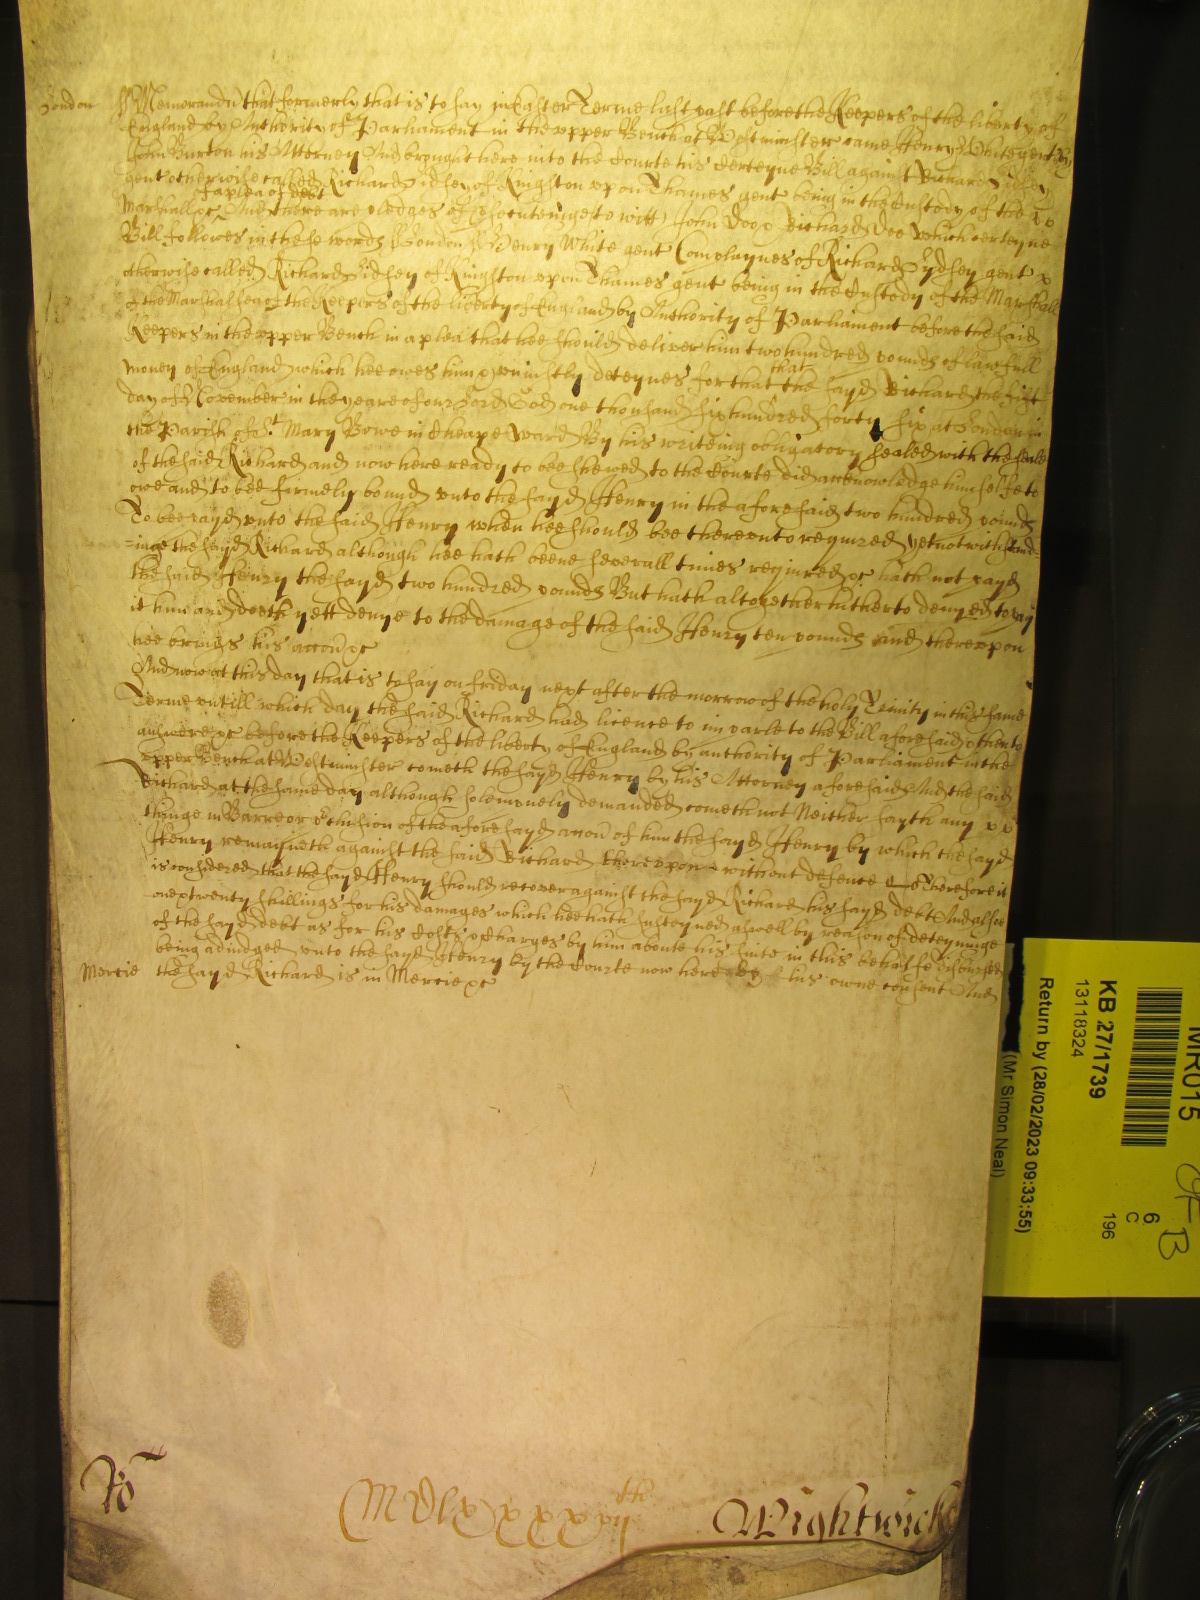 London ss Memorand that formerly that is to say in Easter Terme last past before the Keepers of the liberty of
England by Authority of Parliament in the upper Bench at Westminster came Henry White gent by
John Burton his Attorney And brought here into the Courte his certeyne Bill against Richard Lidsey
gent otherwise called Richard Lidsey of Kingston upon Thames gent being in the Custody of the
of a plea of debt
Marshall &c And there are pledges of prosecuteinge to witt John Doo & Richard Roo which certeyne
Bill followes in these words London ss Henry White gent Complaynes of Richard Lydsey gent
otherwise called Richard Lidsey of Kingston upon Thames gent being in the Custody of the Marshall
of the Marshalsea of the Keepers of the liberty of England by Authority of Parliament before the said
Keepers in the upper Bench in a plea that hee should deliver him two hundred pounds of lawfull
money of England which hee owes him & uniustly deteynes for that that the sayd Richard the first
day of November in the yeare of our Lord God one thousand six hundred forty six at London in
the Parish of St Mary Bowe in Cheape Ward By his writeing obligatory sealed with the seale
of the said Richard and now here ready to bee shewed to the Courte did acknowledge himselfe to
owe and to bee firmely bound unto the sayd Henry in the aforesaid two hundred pounds
To bee payd unto the said Henry when hee should bee thereunto required yet notwithstand
=inge the sayd Richard although hee hath beene severall times required &c hath not payd
the said Henry the sayd two hundred pounds But hath altogether hitherto denyed to pay
it him and doeth yett denye to the damage of the said Henry ten pounds And thereupon
hee brings his accon &c
And now at this day that is to say on Friday next after the morrow of the holy Trinity in this same
Terme untill which day the said Richard had licence to imparle to the Bill aforesaid & then to
answere &c before the Keepers of the liberty of England by authority of Parliament in the
upper Bench at Westminster cometh the sayd Henry by his Attorney aforesaid And the said
Richard at the same day although solemnely demanded cometh not Neither sayth any
thinge in Barre or preclusion of the aforesayd accon of him the sayd Henry by which the sayd
Henry remayneth against the said Richard thereupon without defence Therefore it
is considered that the sayd Henry should recover against the sayd Richard his sayd debt And alsoe
twenty shillings for his damages which hee hath susteyned aswell by reason of deteyninge
of the sayd debt as for his Costs & charges by him aboute his suite in this behalfe disbursed
being adiudged unto the sayd Henry by the Courte now here his owne consent And
Mercie the sayd Richard is in Mercie &c
Ro
MDlxxxxvijth
Wightwick
MR015
KB 27/1739
13118324
Return by (28/02/2023 09:33:55)
(Mr Simon Neal)
6
C
196